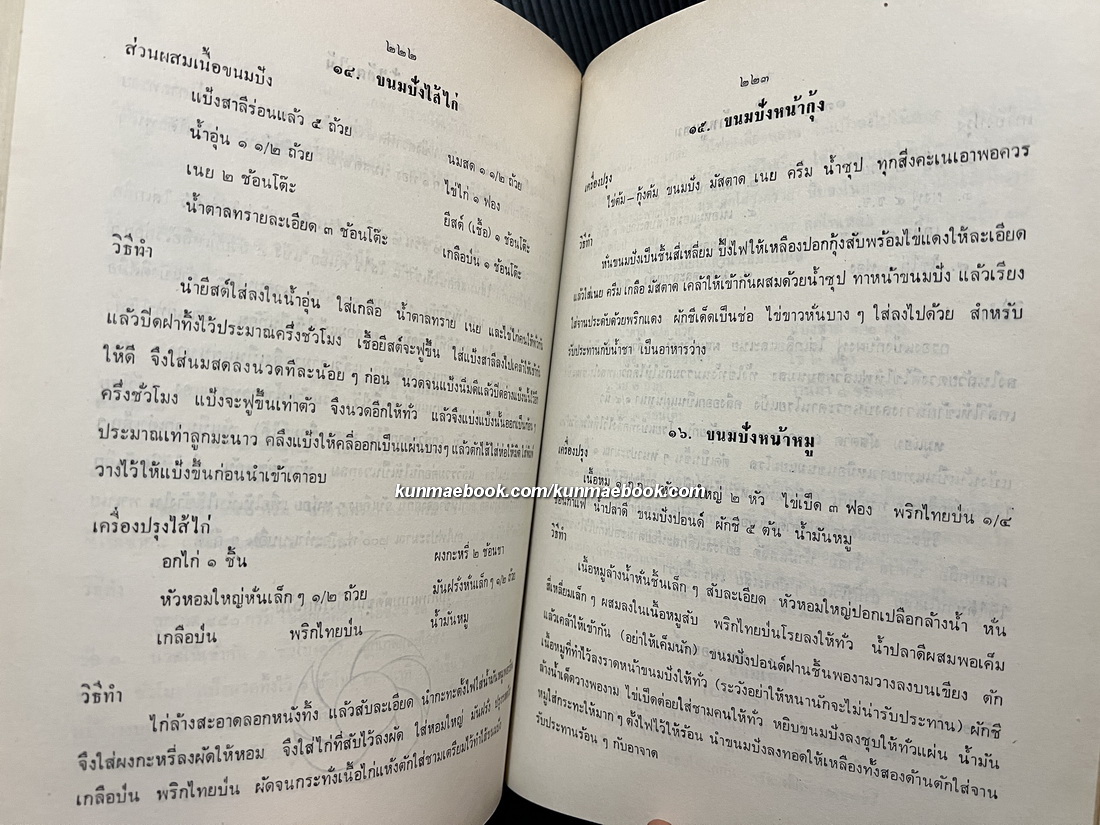 ๒๒๒
๑๔. ขนมปังไส้ไก่
ส่วนผสมเนื้อขนมปัง
แป้งสาลีร่อนแล้ว ๕ ถ้วย
น้ำอุ่น ๑ ๑/๒ ถ้วย
เนย ๒ ช้อนโต๊ะ
น้ำตาลทรายละเอียด ๓ ช้อนโต๊ะ
นมสด ๑ ๑/๒ ถ้วย
ไข่ไก่ ๑ ฟอง
ยีสต์ (เชื้อ) ๑ ช้อนโต๊ะ
เกลือป่น ๑ ช้อนโต๊ะ
วิธีทำ
นำยีสต์ใส่ลงในน้ำอุ่น ใส่เกลือ น้ำตาลทราย เนย และไข่ไก่คนให้เข้ากัน
แล้วปิดฝาทิ้งไว้ประมาณครึ่งชั่วโมง เชื้อยีสต์จะฟูขึ้น ใส่แป้งสาลีลงไปเคล้าให้เข้ากัน
ให้ดี จึงใส่นมสดลงนวดทีละน้อย ๆ ก่อน นวดจนแป้งนิ่มดีแล้วปิดอ่างแป้งนั้นไว้อีก
ครึ่งชั่วโมง แป้งจะฟูขึ้นเท่าตัว จึงนวดอีกให้ทั่ว แล้วจึงแบ่งแป้งนั้นออกเป็นก้อน ๆ
ประมาณเท่าลูกมะนาว คลึงแป้งให้คลี่ออกเป็นแผ่นบางๆ แล้วตักไส้ใส่ห่อให้มิด
วางไว้ให้แป้งขึ้นก่อนนำเข้าเตาอบ
เครื่องปรุงไส้ไก่
อกไก่ ๑ ชิ้น
หัวหอมใหญ่หั่นเล็ก ๆ ๑/๒ ถ้วย
เกลือป่น พริกไทยป่น
ผงกะหรี่ ๒ ช้อนชา
มันฝรั่งหั่นเล็ก ๆ ๑/๒ ถ้วย
น้ำมันหมู
วิธีทำ
ไก่ล้างสะอาดลอกหนังทิ้ง แล้วสับละเอียด นำกะทะตั้งไฟใส่น้ำมันหมู
จึงใส่ผงกะหรี่ลงผัดให้หอม จึงใส่ไก่ที่สับไว้ลงผัด ใส่หอมใหญ่ มันฝรั่ง
เกลือป่น พริกไทยป่น ผัดจนกระทั่งเนื้อไก่แห้งตักใส่ชามเตรียมไว้ทำไส้ขนมปัง
๒๒๓
๑๕. ขนมปังหน้ากุ้ง
เครื่องปรุง
ไข่ต้ม—กุ้งต้ม ขนมปัง มัสตาด เนย ครีม น้ำซุป ทุกสิ่งคะเนเอาพอควร
วิธีทำ
หั่นขนมปังเป็นชิ้นสี่เหลี่ยม ปิ้งไฟให้เหลืองปอกกุ้งสับพร้อมไข่แดงให้ละเอียด
แล้วใส่เนย ครีม เกลือ มัสตาด เคล้าให้เข้ากันผสมด้วยน้ำซุป ทาหน้าขนมปัง แล้วเรียง
ใส่จานประดับด้วยพริกแดง ผักชีเด็ดเป็นช่อ ไข่ขาวหั่นบาง ๆ ใส่ลงไปด้วย สำหรับ
รับประทานกับน้ำชา เป็นอาหารว่าง
๑๖. ขนมปังหน้าหมู
เครื่องปรุง
เนื้อหมู ใหญ่ ๒ หัว ไข่เป็ด ๓ ฟอง พริกไทยป่น ๑/๔
ช้อนกาแฟ น้ำปลาดี ขนมปังปอนด์ ผักชี ๕ ต้น น้ำมันหมู
kunmaebook.com/kunmaebook.com
วิธีทำ
เนื้อหมูล้างน้ำหั่นชิ้นเล็กๆ สับละเอียด หัวหอมใหญ่ปอกเปลือกล้างน้ำ หั่น
สี่เหลี่ยมเล็ก ๆ ผสมลงในเนื้อหมูสับ พริกไทยป่นโรยลงให้ทั่ว น้ำปลาดีผสมพอเค็ม
แล้วเคล้าให้เข้ากัน (อย่าให้เค็มนัก) ขนมปังปอนด์ฝานชิ้นพองามวางลงบนเขียง ตัก
เนื้อหมูที่ทำไว้ลงราดหน้าขนมปังให้ทั่ว (ระวังอย่าให้หนานักจะไม่น่ารับประทาน) ผักชี
ล้างน้ำเด็ดวางพองาม ไข่เป็ดต่อยใส่ชามคนให้ทั่ว หยิบขนมปังลงชุบให้ทั่วแผ่น น้ำมัน
หมูใส่กระทะให้มาก ๆ ตั้งไฟไว้ให้ร้อน นำขนมปังลงทอดให้เหลืองทั้งสองด้านตักใส่จาน
รับประทานร้อน ๆ กับอาจาด